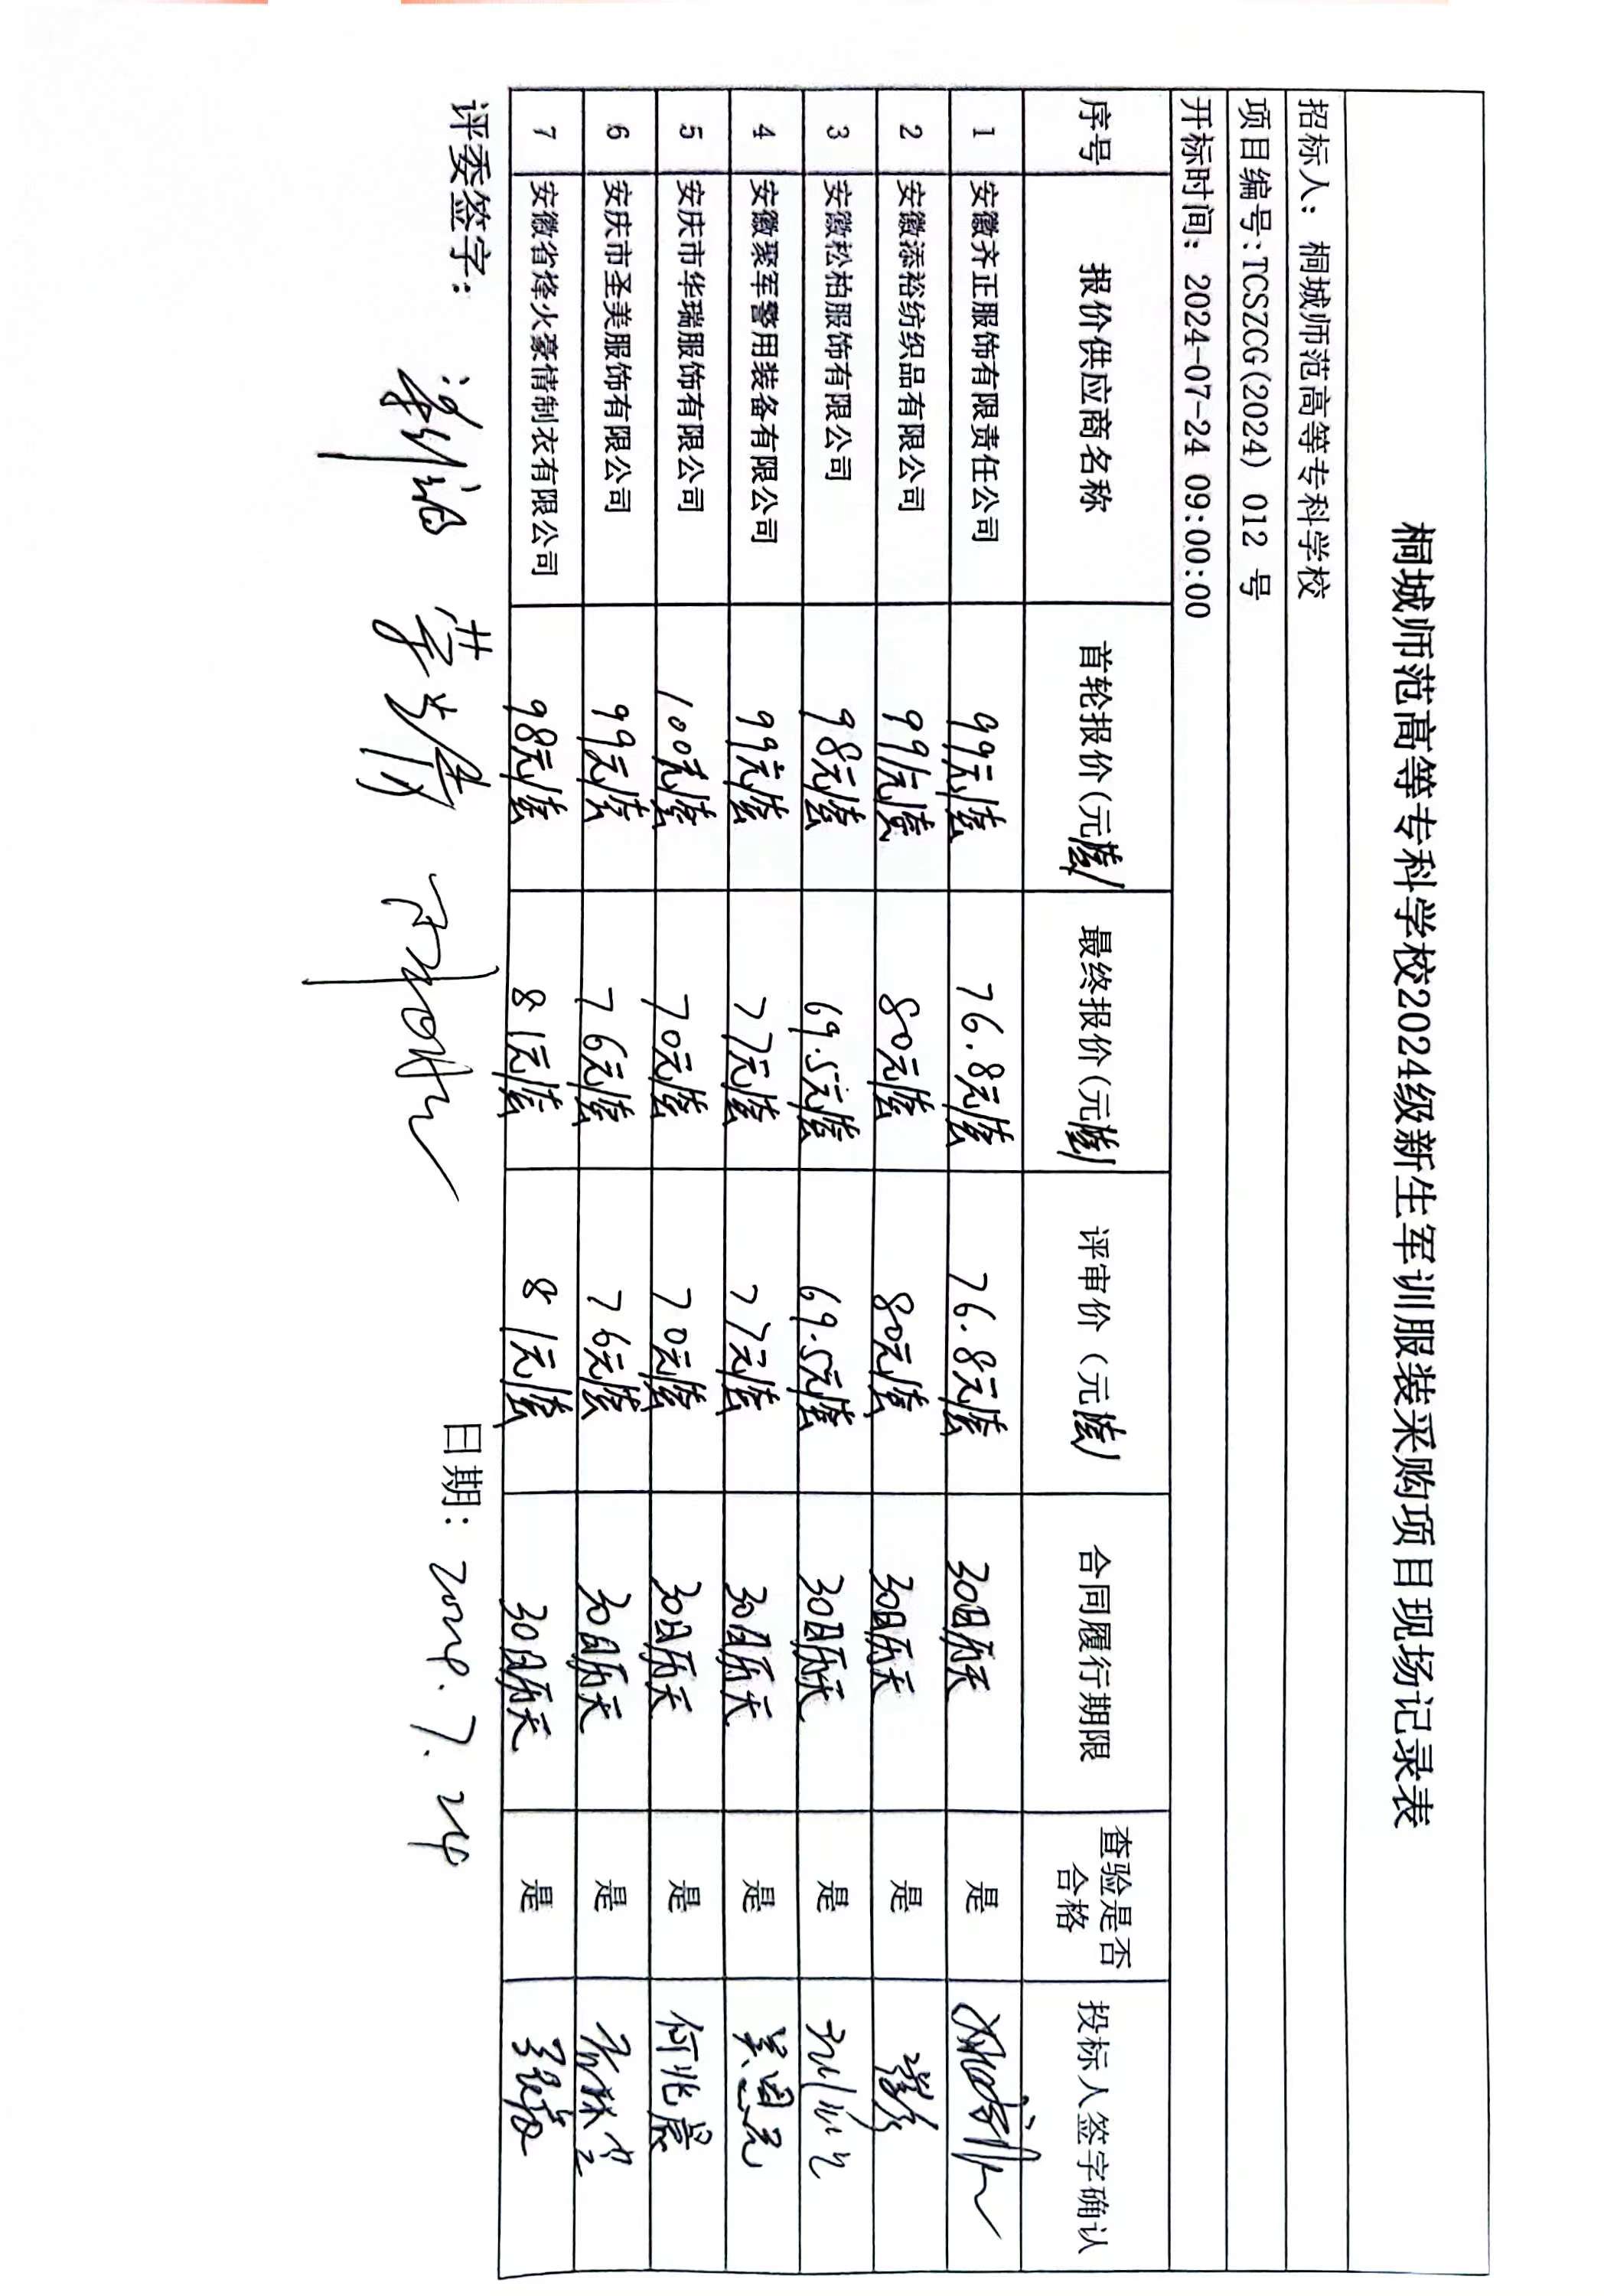 桐城师范高等专科学校2024级新生军训服装采购项目现场记录表
招标人：桐城师范高等专科学校
项目编号:TCSZCG(2024) 012 号
开标时间：2024-07-24 09:00:00
序号 报价供应商名称 首轮报价(元/套) 最终报价(元/套) 评审价（元/套） 合同履行期限 查验是否合格 投标人签字确认
1 安徽齐正服饰有限责任公司 99元/套 76.8元/套 76.8元/套 30日历天 是
2 安徽添裕纺织品有限公司 99元/套 80元/套 80元/套 30日历天 是
3 安徽松柏服饰有限公司 98元/套 69.5元/套 69.5元/套 30日历天 是
4 安徽聚军警用装备有限公司 99元/套 77元/套 77元/套 30日历天 是
5 安庆市华瑞服饰有限公司 100元/套 70元/套 70元/套 30日历天 是 何兆震
6 安庆市圣美服饰有限公司 99元/套 76元/套 76元/套 30日历天 是
7 安徽省烽火豪情制衣有限公司 98元/套 81元/套 81元/套 30日历天 是
评委签字： 日期：2024.7.24